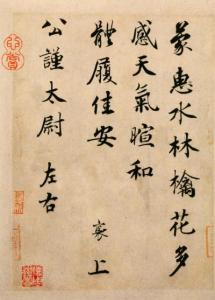 蒙惠水林檎花多
感天氣暄和
體履佳安
襄上
公謹太尉左右